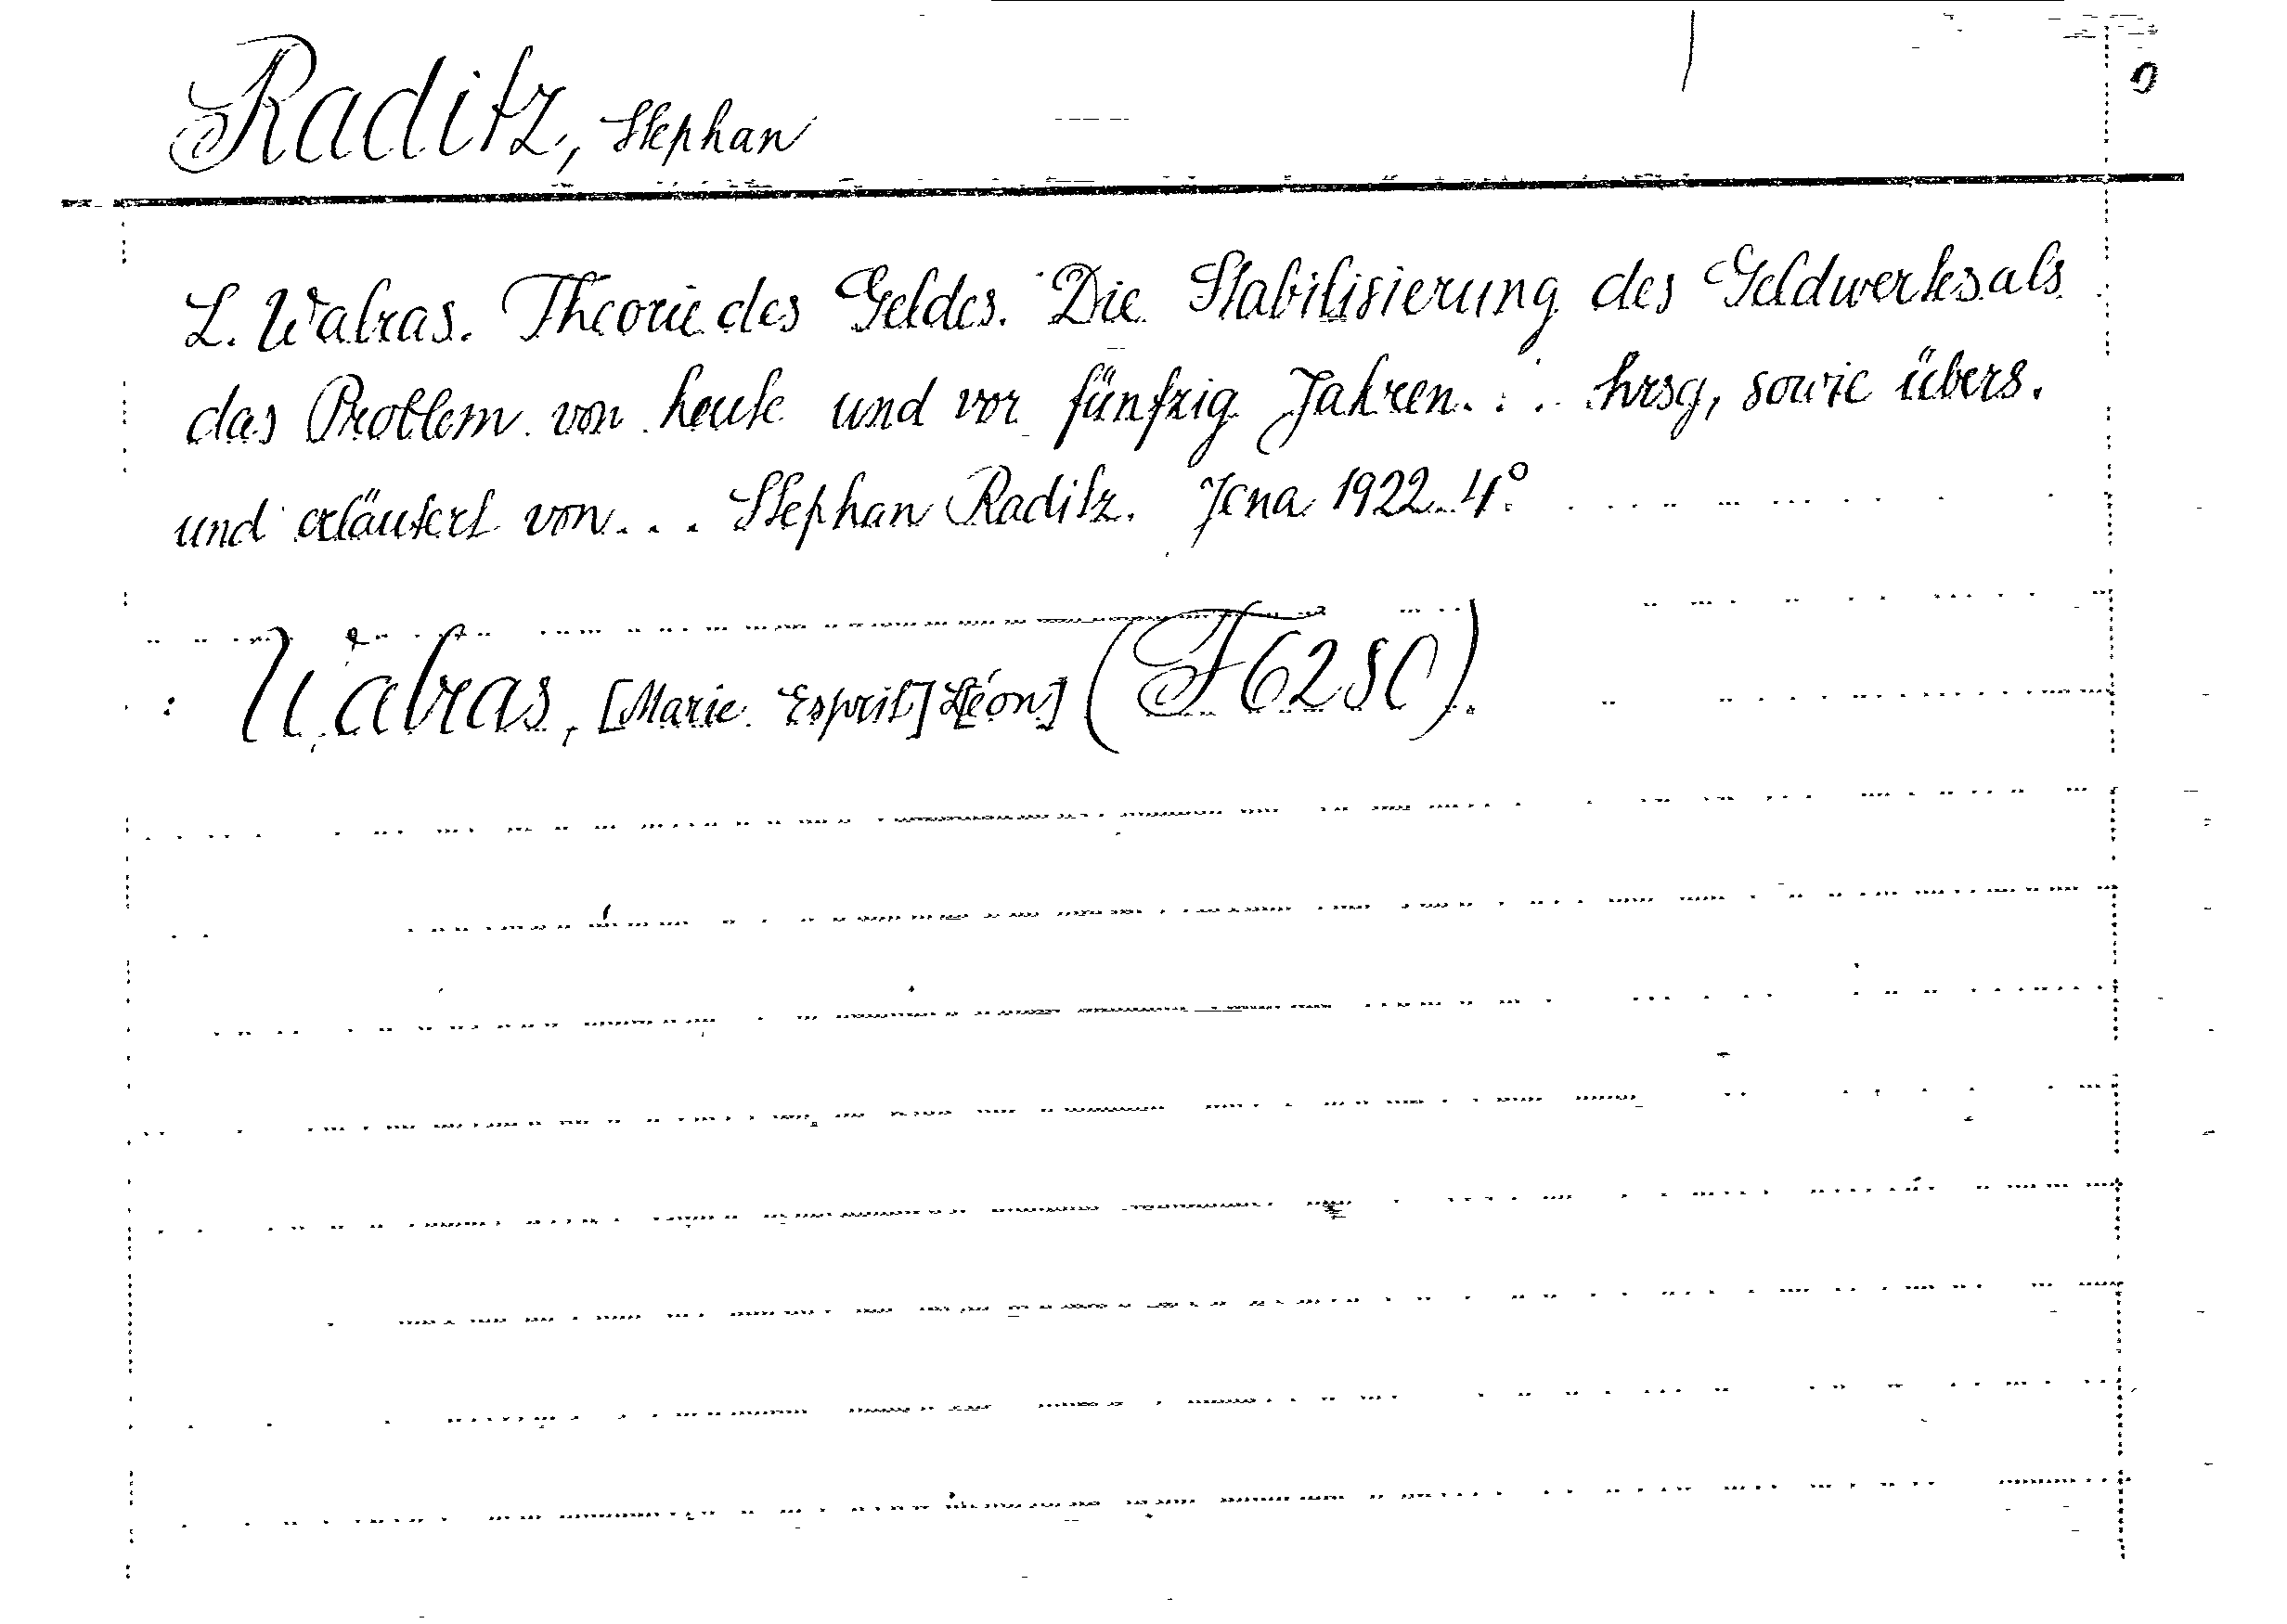 Raditz, Stephan
L. Walras. Theorie des Geldes. Die Stabilisierung des Geldwertes als
das Problem von heute und vor fünfzig Jahren... hrsg, sowie übers.
und erläutert von... Stephan Raditz. Jena 1922. 4°
Walras, [Marie Esprit] Léon]